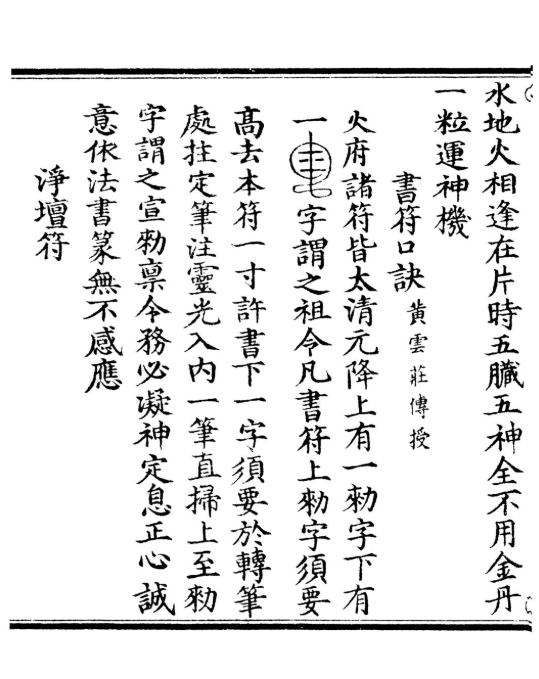 水地火相逢在片時五臟五神全不用金丹
一粒運神機
書符口訣黃雲莊傳授
火府諸符皆太清元降上有一勑字下有
一字謂之祖令凡書符上勑字須要
髙去本符一寸許書下一字須要於轉筆
處拄定筆注靈光入内一筆直掃上至勑
字謂之宣勑禀令務必凝神定息正心誠
意依法書篆無不感應
淨壇符